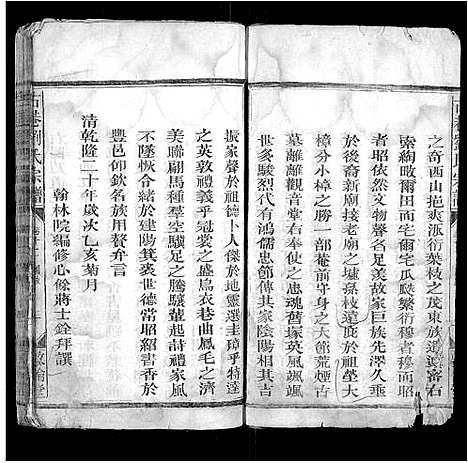 之奇西山挹爽漲衍葉枝之茂東族遐蕃右
索綯畂爾田而宅爾宅瓜瓞繁衍穆者昭
者昭依然文物聲名足美故家巨族先澤久垂
於後裔新廟接老廟之墟孫枝於祖塋大
樟分小樟之勝一部菴前守身之大節荒煙古
墓離離觀音堂右奉君之忠魂舊塚英風颯颯
世多駿烈代有鴻儒忠節傳其家陰陽相吉
振家聲於祖德卜人傑於地靈選圭璋乎特達
英敦禮義乎冠裳之盛烏衣巷曲鳳毛之濟
美聯翩馬種羣空驥足之騰驤輩起詩禮家風
不墜恢合於建陽箕裘世德常昭絹書於
豐邑仰欽名族用贅弁言
清乾隆二十年歲次乙亥菊月
翰林院編修心餘蔣士銓拜譔
氏宗譜